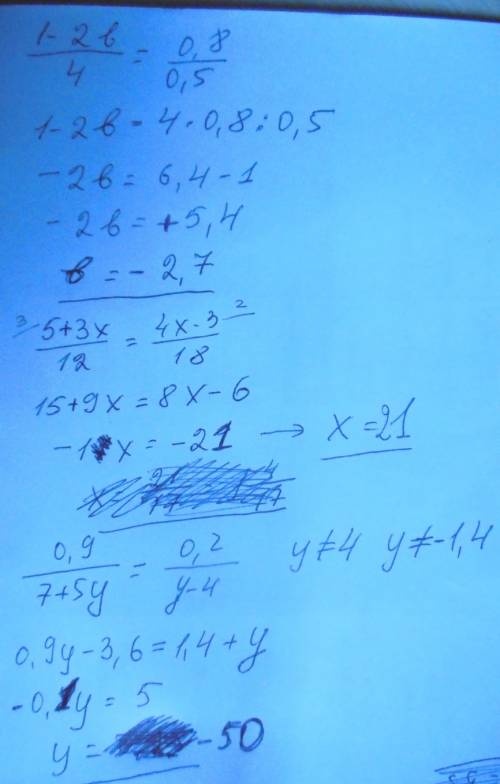 (1-2в)/4 = 0,8/0,5
1-2в = 4·0,8:0,5
-2в = 6,4-1
-2в = +5,4
в = -2,7
3 (5+3x)/12 = (4x-3)/18 2
15+9x = 8x-6
-1x = -21 → x=21
0,9/(7+5y) = 0,2/(y-4) y≠4 y≠-1,4
0,9y-3,6=1,4+y
-0,1y = 5
y = -50